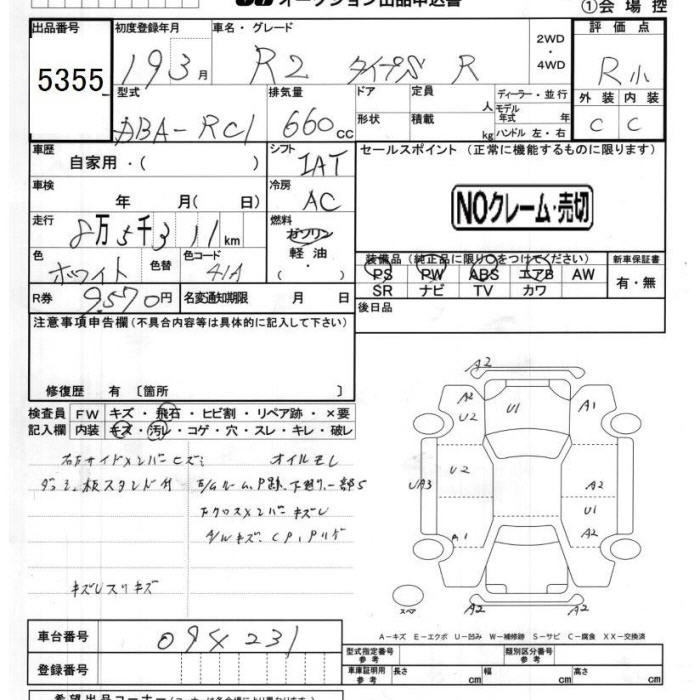 オークション出品申込書
①会場控
出品番号 初度登録年月 車名・グレード 2WD・4WD 評価点
5355 19 3月 R2 タイプS R R小
型式 排気量 ドア 定員 人 ディーラー・並行 外装 内装
ABA-RC1 660cc 形状 積載 kg モデル年式 年 ハンドル 左・右 C C
車歴 自家用・( ) シフト IAT セールスポイント (正常に機能するものに限ります)
車検 年 月( 日) 冷房 AC
NOクレーム・売切
走行 8万5千311km 燃料 ガソリン
軽油
( ・ )
色 ホワイト 色替 色コード 41A
装備品(純正品に限り○をつけてください) 新車保証書
PS PW ABS エアB AW 有・無
SR ナビ TV カワ
R券 9,570円 名変通知期限 月 日 後日品
注意事項申告欄(不具合内容等は具体的に記入して下さい)
修復歴 有 〔箇所 〕
検査員 FW キズ・飛石・ヒビ割・リペア跡・×要
記入欄 内装 キズ・汚レ・コゲ・穴・スレ・キレ・破レ
右Fサイドメンバーヒズミ オイルモレ
下クロスメンバーキズレ
A/Wキズ、CP、
A2
A2 U2 U1 A1
U2 A2
UA3 U1
A1 A2
スペア A2 A2
A-キズ E-エクボ U-凹み W-補修跡 S-サビ C-腐食 XX-交換済
車台番号 094231
型式指定番号 参考 類別区分番号 参考
登録番号 車庫証明用 参考 長さ cm 幅 cm 高さ cm
希望出品コーナー